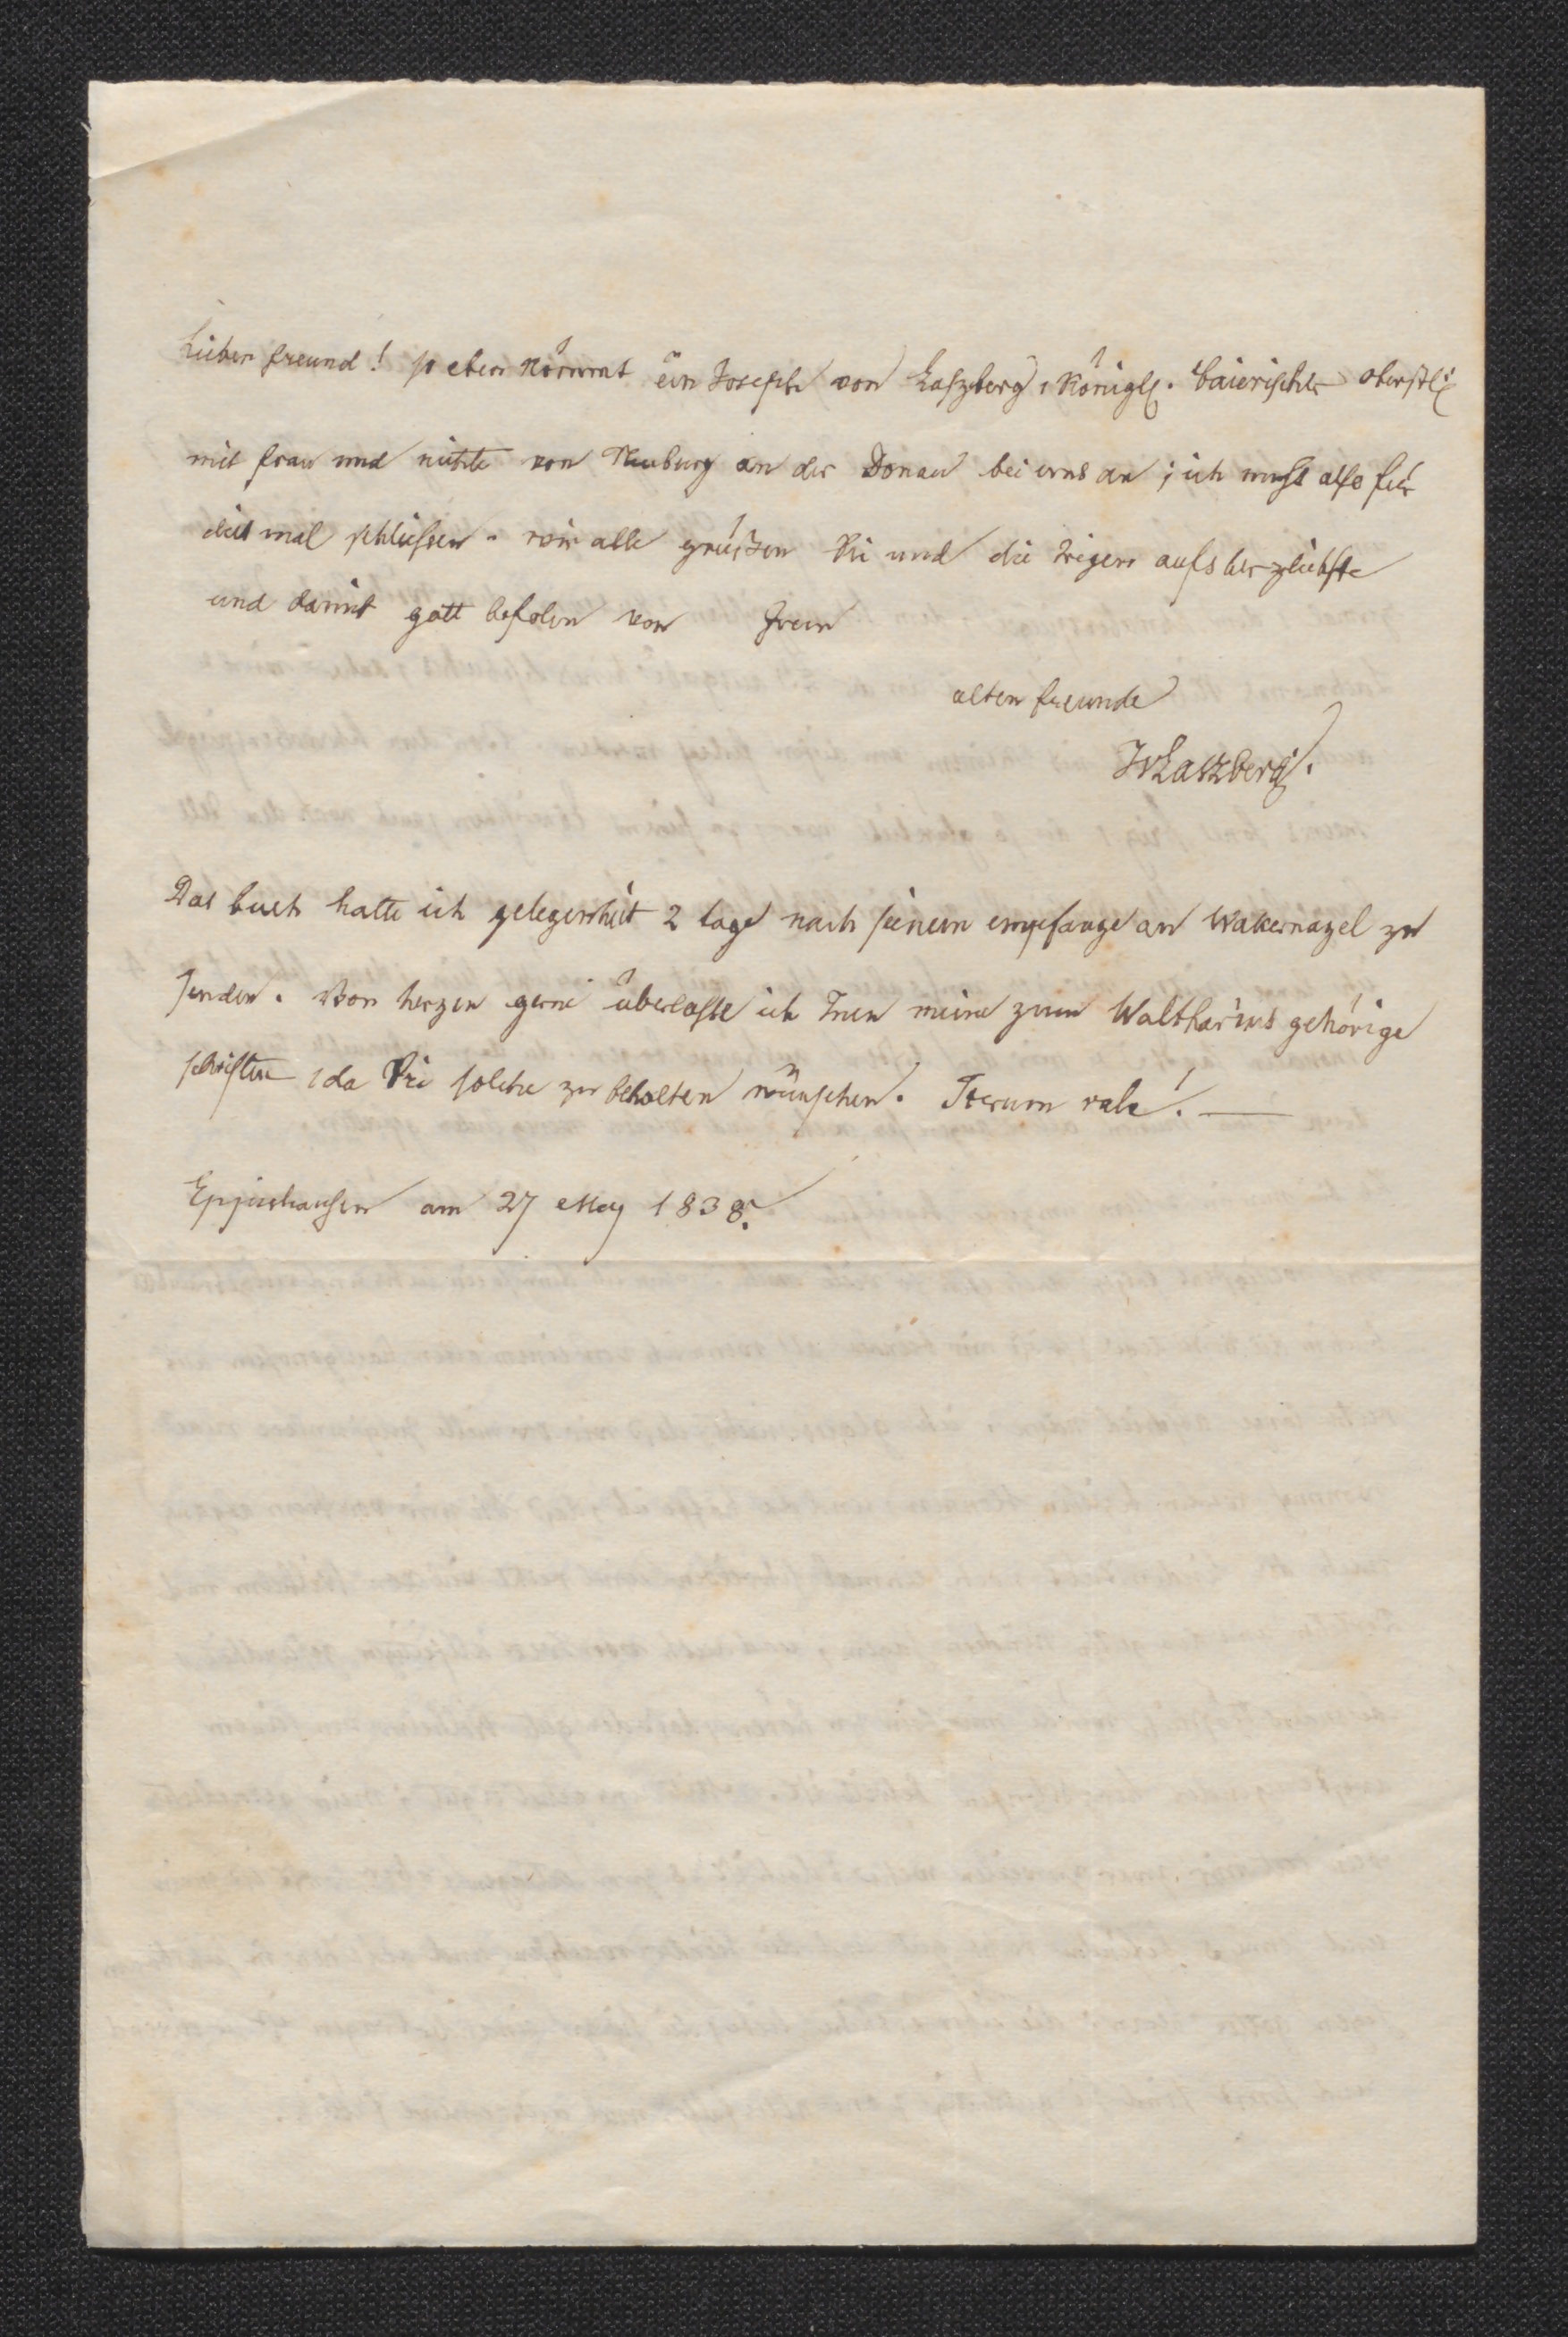 Lieber freund! so eben kömmt ein Joseph von Laszberg, Königl. baierischer oberstl:
mit frau und nichte von Neuburg an der Donau bei uns an; ich muss also für
dies mal schliessen. wir alle grüszen Sie und die Irigen aufs herzlichste
und damit gott befolen von Irem
alten freunde
JvLaszberg.
Das buch hatte ich gelegenheit 2 tage nach seinem empfange an Wakernagel zu
senden. Von herzen gerne überlasse ich Inen meine zum Waltharius gehörige
schriften, da Sie solche zu behalten wünschen. Iterum vale!. —
Eppishausen am 27 May 1838.